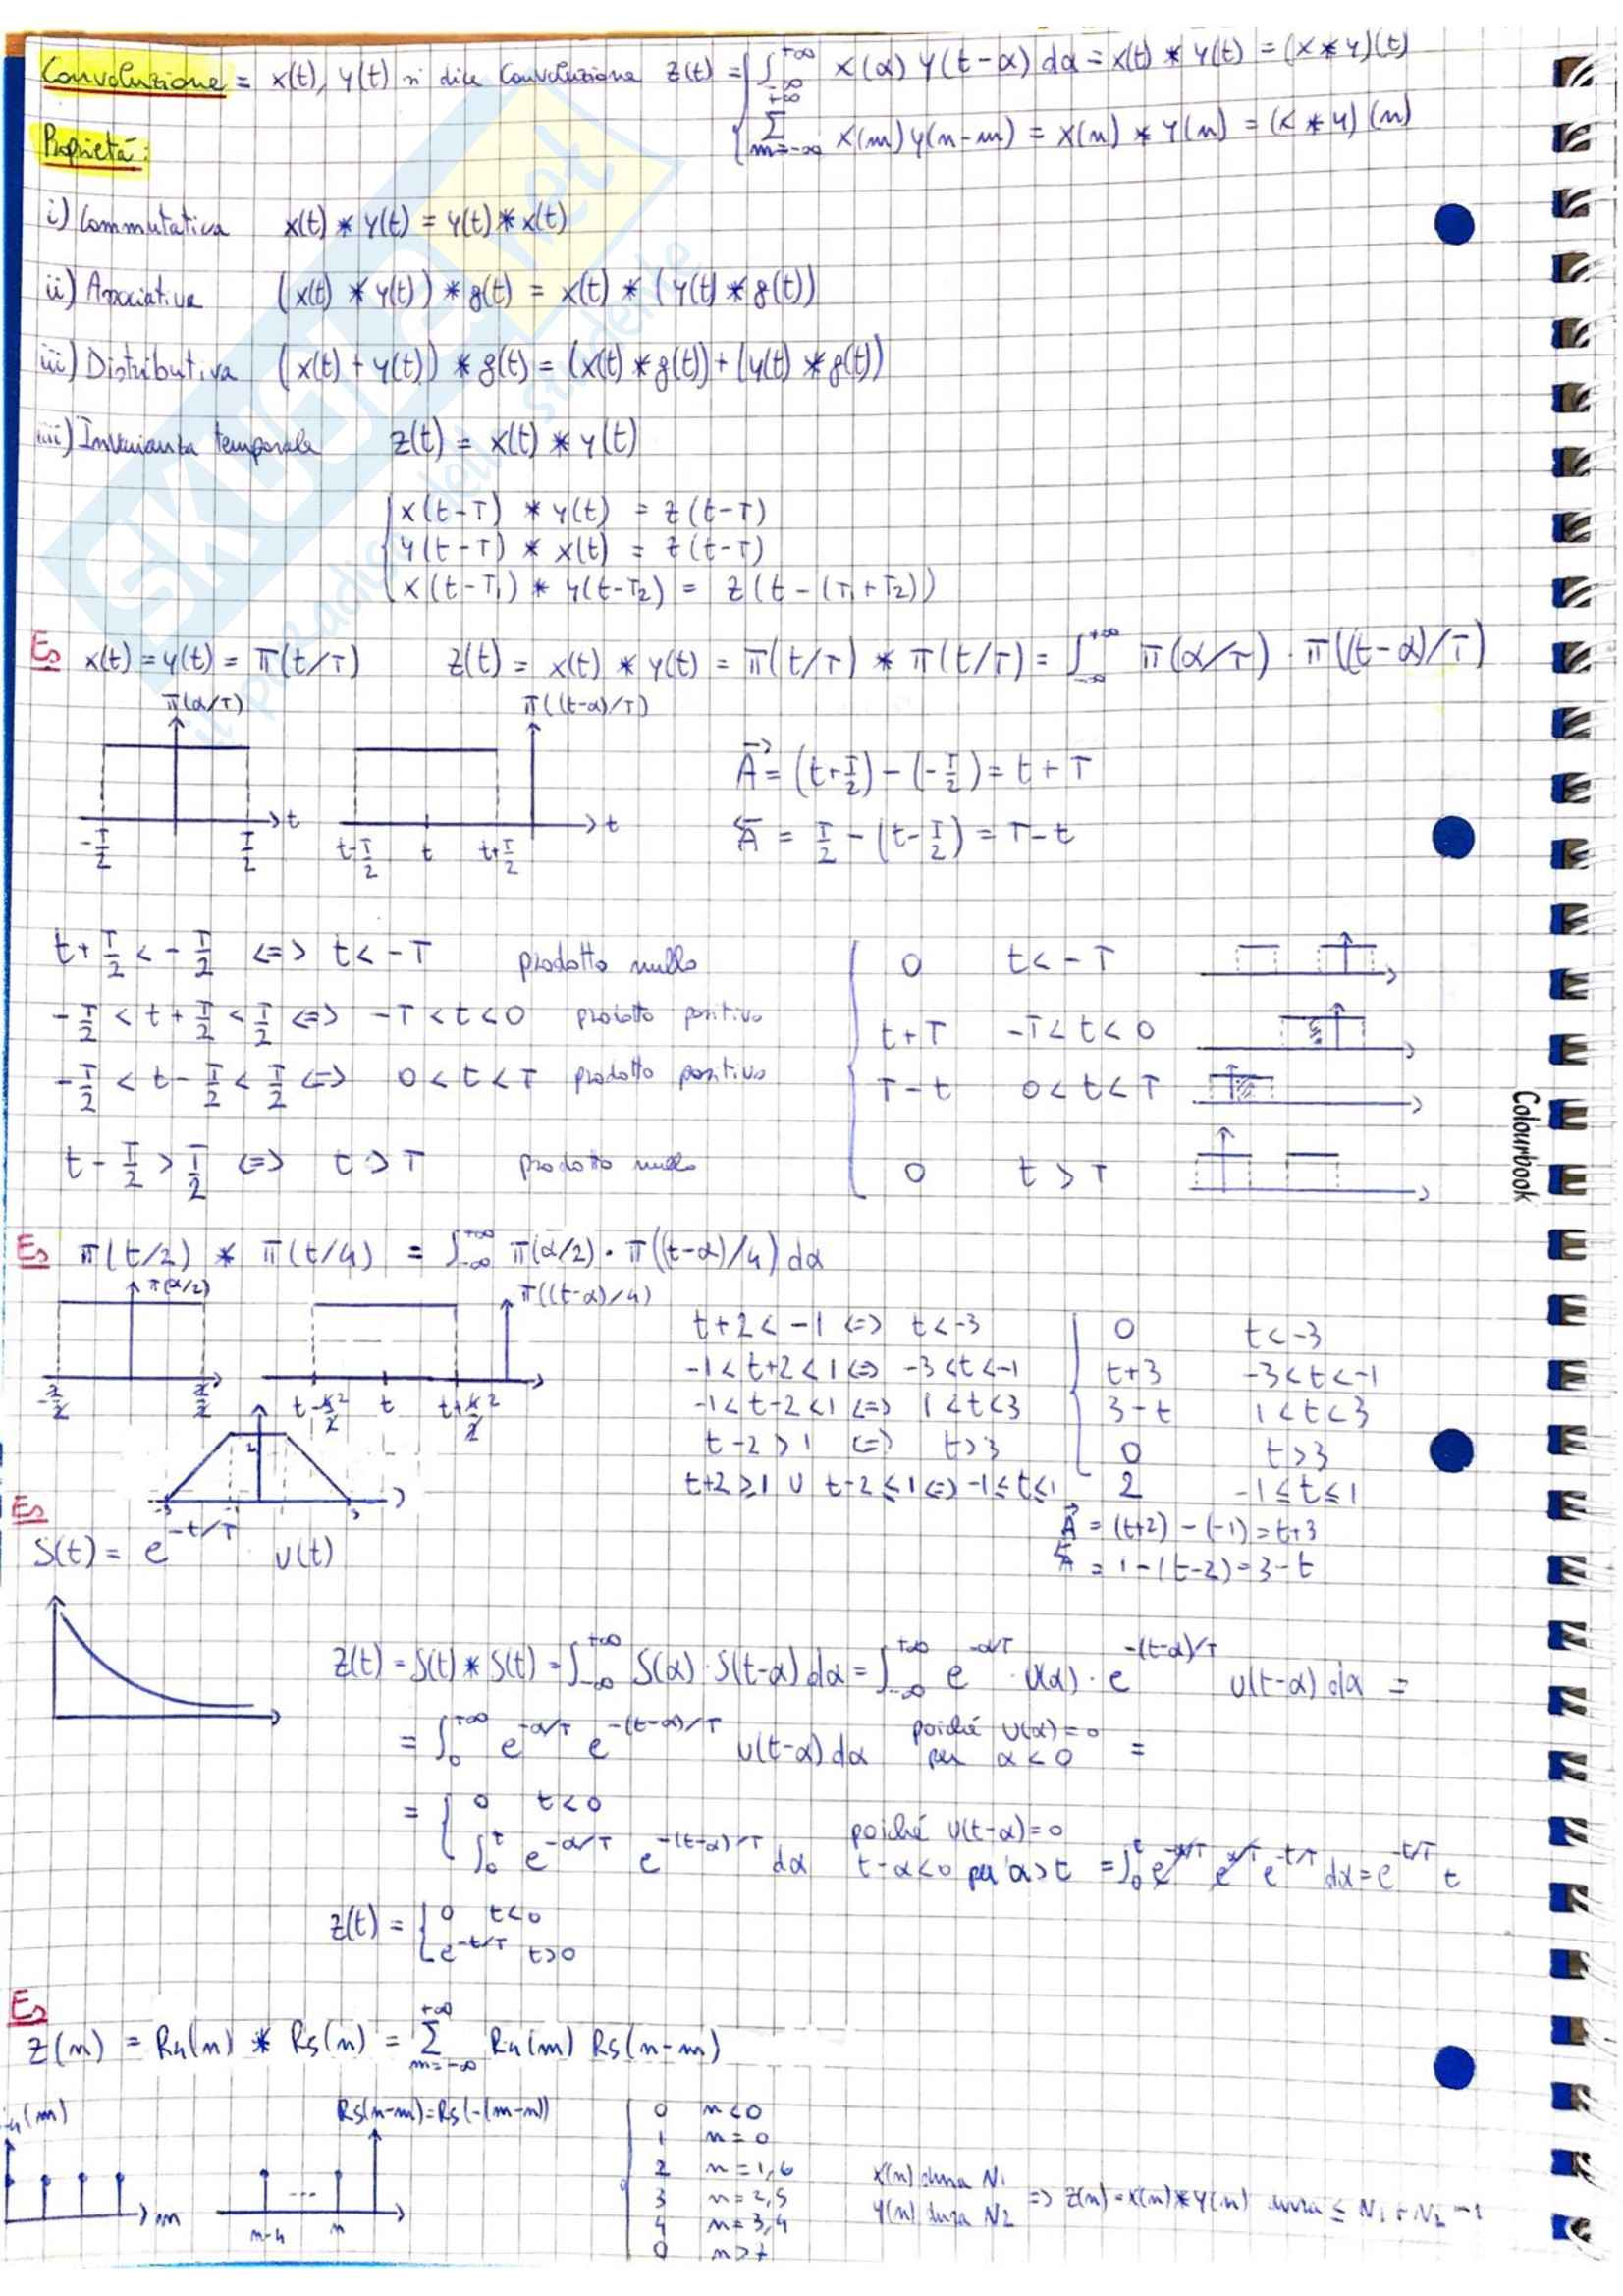 Convoluzione = x(t), y(t) si dice Convoluzione z(t) = { ∫_{-∞}^{+∞} x(α) y(t-α) dα = x(t) * y(t) = (x * y)(t)
Σ_{m=-∞}^{+∞} x(m) y(n-m) = x(n) * y(n) = (x * y)(n)
Proprietà:
i) Commutativa x(t) * y(t) = y(t) * x(t)
ii) Associativa (x(t) * y(t)) * g(t) = x(t) * (y(t) * g(t))
iii) Distributiva (x(t) + y(t)) * g(t) = (x(t) * g(t)) + (y(t) * g(t))
iiii) Invarianza temporale z(t) = x(t) * y(t)
x(t-T) * y(t) = z(t-T)
y(t-T) * x(t) = z(t-T)
x(t-T₁) * y(t-T₂) = z(t-(T₁+T₂))
Es x(t) = y(t) = π(t/T) z(t) = x(t) * y(t) = π(t/T) * π(t/T) = ∫_{-∞}^{+∞} π(α/T) · π((t-α)/T)
π(α/T) π((t-α)/T)
A→ = (t+T/2) - (-T/2) = t + T
A← = T/2 - (t-T/2) = T-t
-T/2 T/2 t t-T/2 t t+T/2 t
t+T/2 < -T/2 <=> t < -T prodotto nullo 0 t < -T
-T/2 < t+T/2 < T/2 <=> -T < t < 0 prodotto positivo t+T -T < t < 0
-T/2 < t-T/2 < T/2 <=> 0 < t < T prodotto positivo T-t 0 < t < T
t-T/2 > T/2 <=> t > T prodotto nullo 0 t > T
Colourbook
Es π(t/2) * π(t/4) = ∫_{-∞}^{+∞} π(α/2) · π((t-α)/4) dα
π(α/2) π((t-α)/4)
t+2 < -1 <=> t < -3 0 t < -3
-1 < t+2 < 1 <=> -3 < t < -1 t+3 -3 < t < -1
-1 < t-2 < 1 <=> 1 < t < 3 3-t 1 < t < 3
t-2 > 1 <=> t > 3 0 t > 3
t+2 ≥ 1 ∪ t-2 ≤ 1 <=> -1 ≤ t ≤ 1 2 -1 ≤ t ≤ 1
-2/2 2/2 t-4/2 2 t t+4/2 2
2
-3 3
A→ = (t+2) - (-1) = t+3
A← = 1-(t-2) = 3-t
Es
S(t) = e^{-t/T} u(t)
z(t) = S(t) * S(t) = ∫_{-∞}^{+∞} S(α) · S(t-α) dα = ∫_{-∞}^{+∞} e^{-α/T} · u(α) · e^{-(t-α)/T} u(t-α) dα =
= ∫_0^{+∞} e^{-α/T} e^{-(t-α)/T} u(t-α) dα poiché u(α) = 0 per α < 0 =
= { 0 t < 0
∫_0^t e^{-α/T} e^{-(t-α)/T} dα poiché u(t-α) = 0 t-α < 0 per α > t = ∫_0^t e^{-α/T} e^{α/T} e^{-t/T} dα = e^{-t/T} t
z(t) = { 0 t < 0
e^{-t/T} t > 0
Es
z(n) = R4(n) * R5(n) = Σ_{m=-∞}^{+∞} R4(m) R5(n-m)
4(m) R5(n-m) = R5(-(m-n))
m n-4 ... n
0 n < 0
1 n = 0
2 n = 1,6
3 n = 2,5
4 n = 3,4
0 n > 7
x(n) dura N₁
y(n) dura N₂ => z(n) = x(n) * y(n) dura ≤ N₁ + N₂ - 1